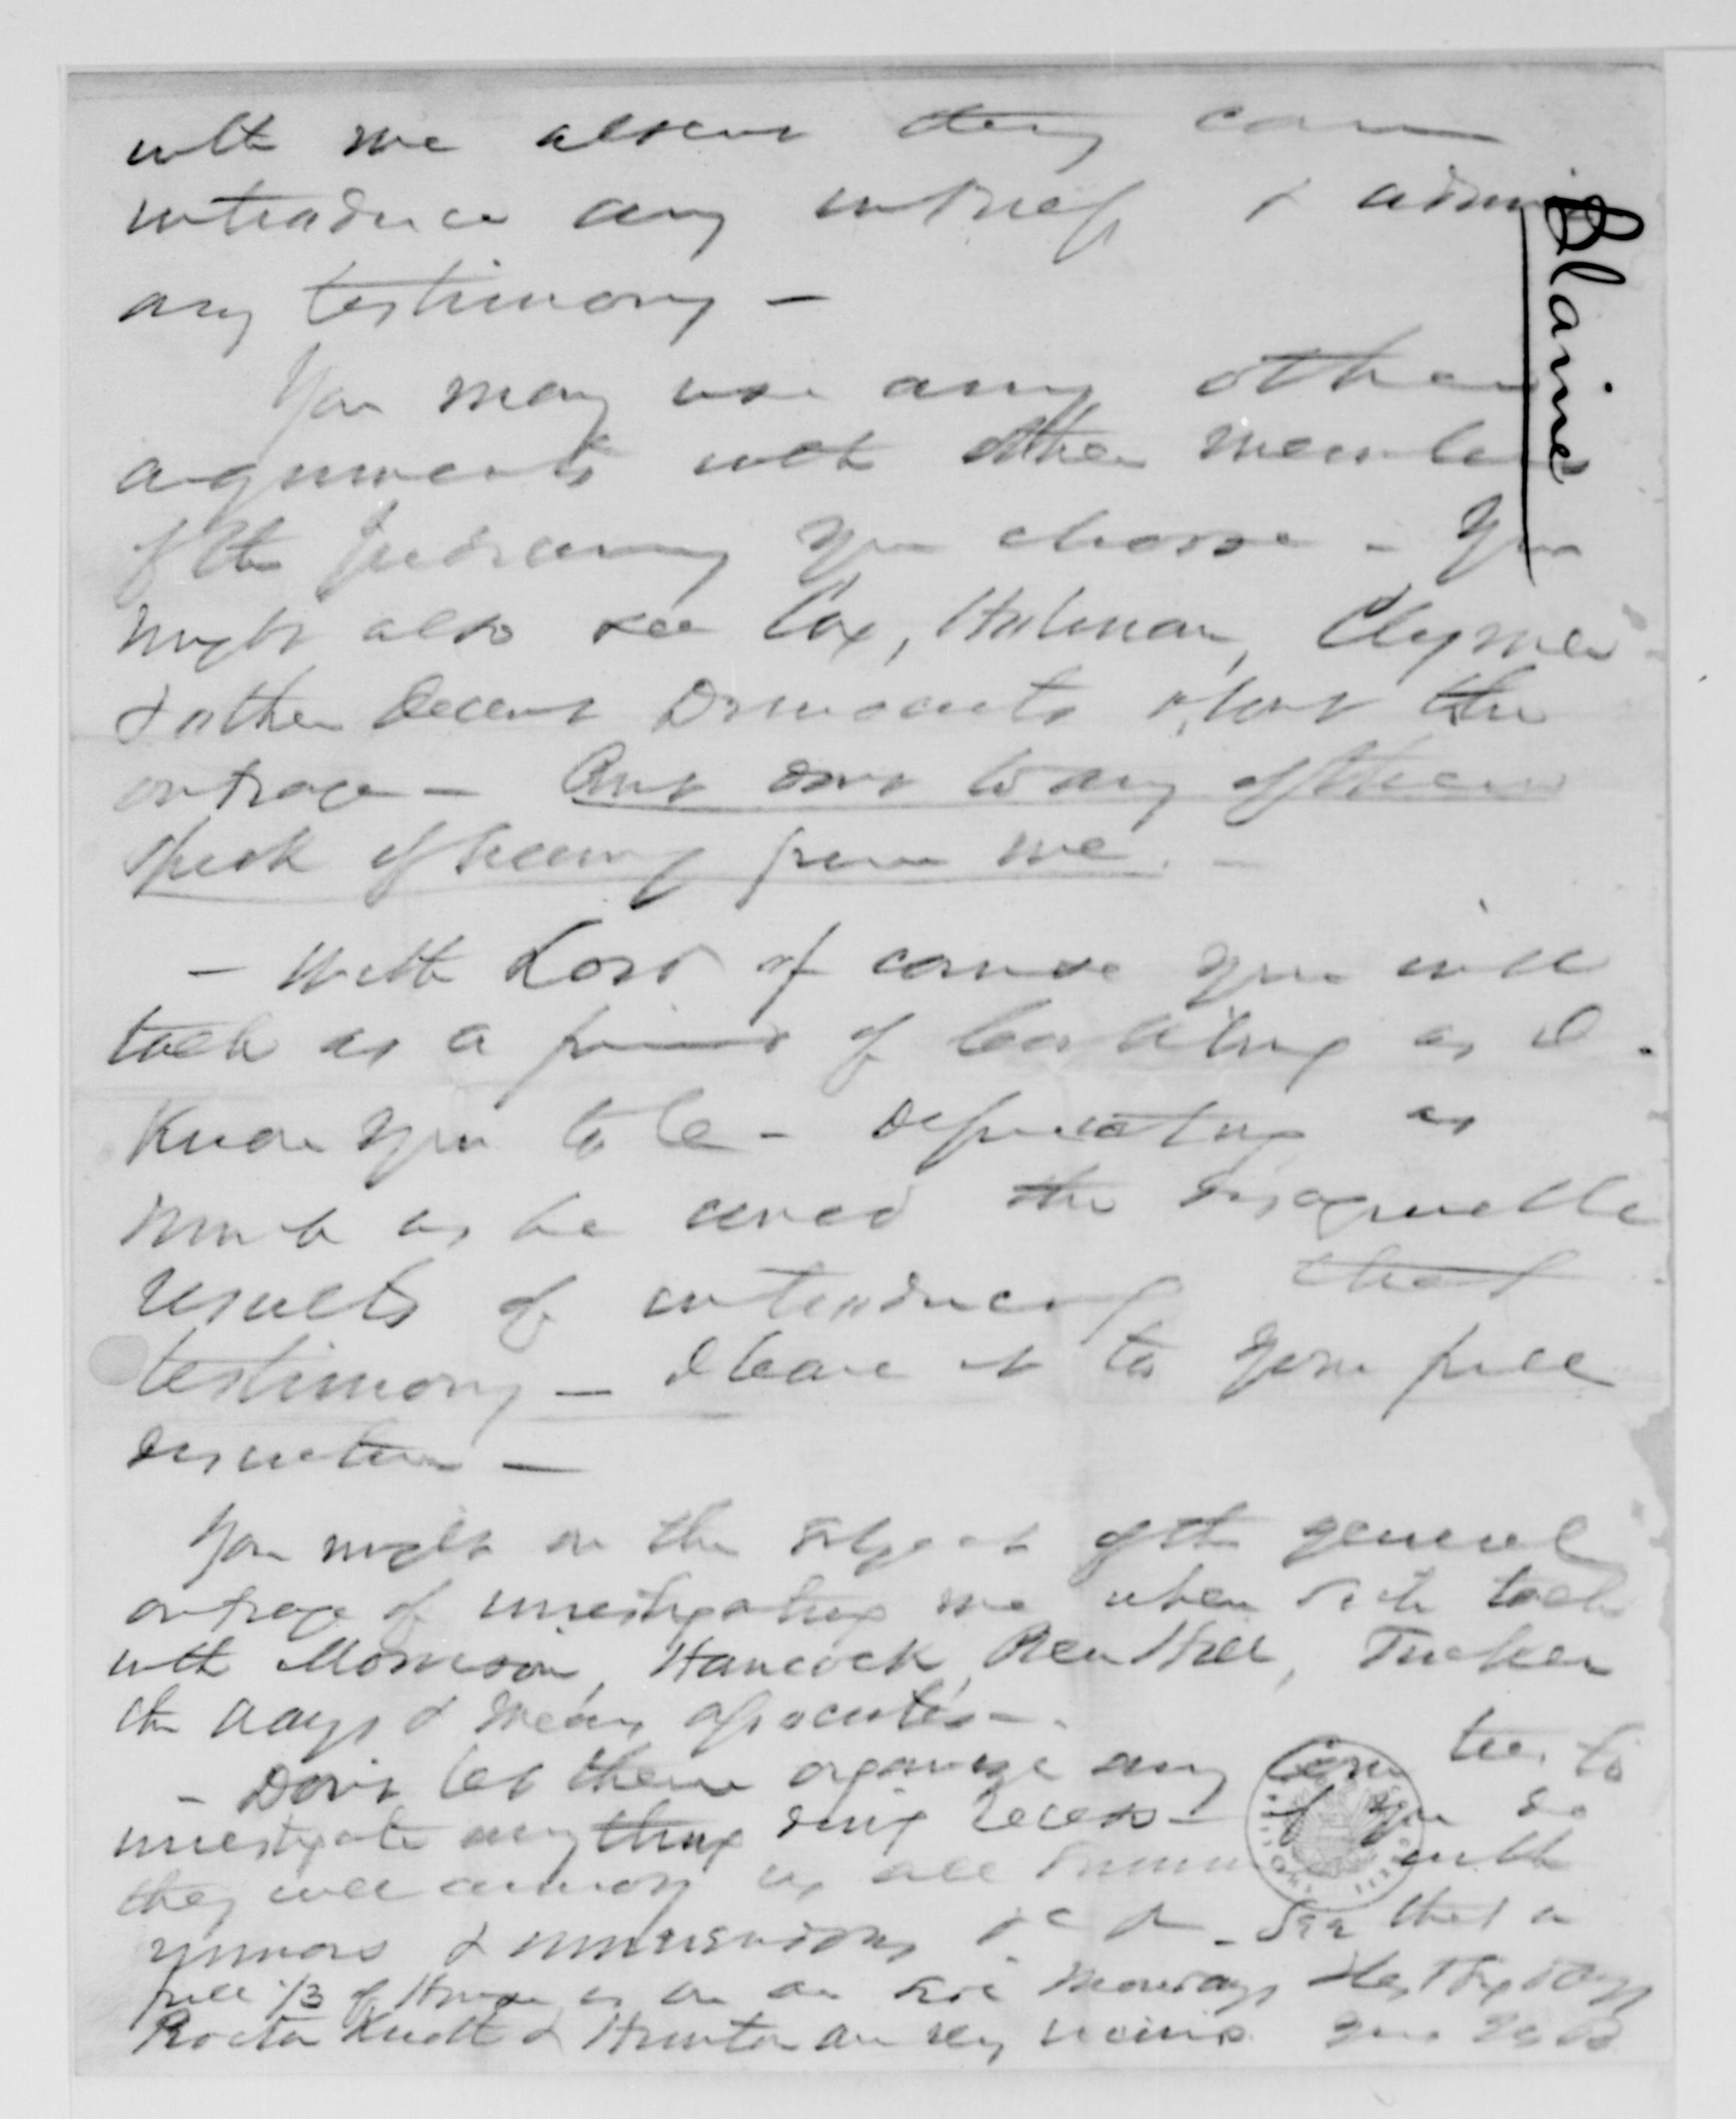 with me absent they can
introduce any witness & admit
any testimony –
You may use any other
arguments with other members
of the Judiciary you choose – You
might also see Cox, Holman, Clymer
& other decent Democrats about the
outrage – But dont to any of them
speak of hearing from me. –
– With Lord of course you will
talk as a friend of both as I
know you to be – deprecating as
much as he can the disagreeable
results of introducing that
testimony – I leave it to your full
discretion –
You might on the subject of the general
outrage of investigating me when sick talk
with Morrison, Hancock, Ben Hill, Tucker
the Ways & Means associates –
– Dont let them organize any Com tee to
investigate anything during recess – if you do
they will annoy us all summer with
rumors & innuendoes &c &c – See that a
full 1/3 of House is on Mondays
Proctor Knott & Hunton are very
Blaine